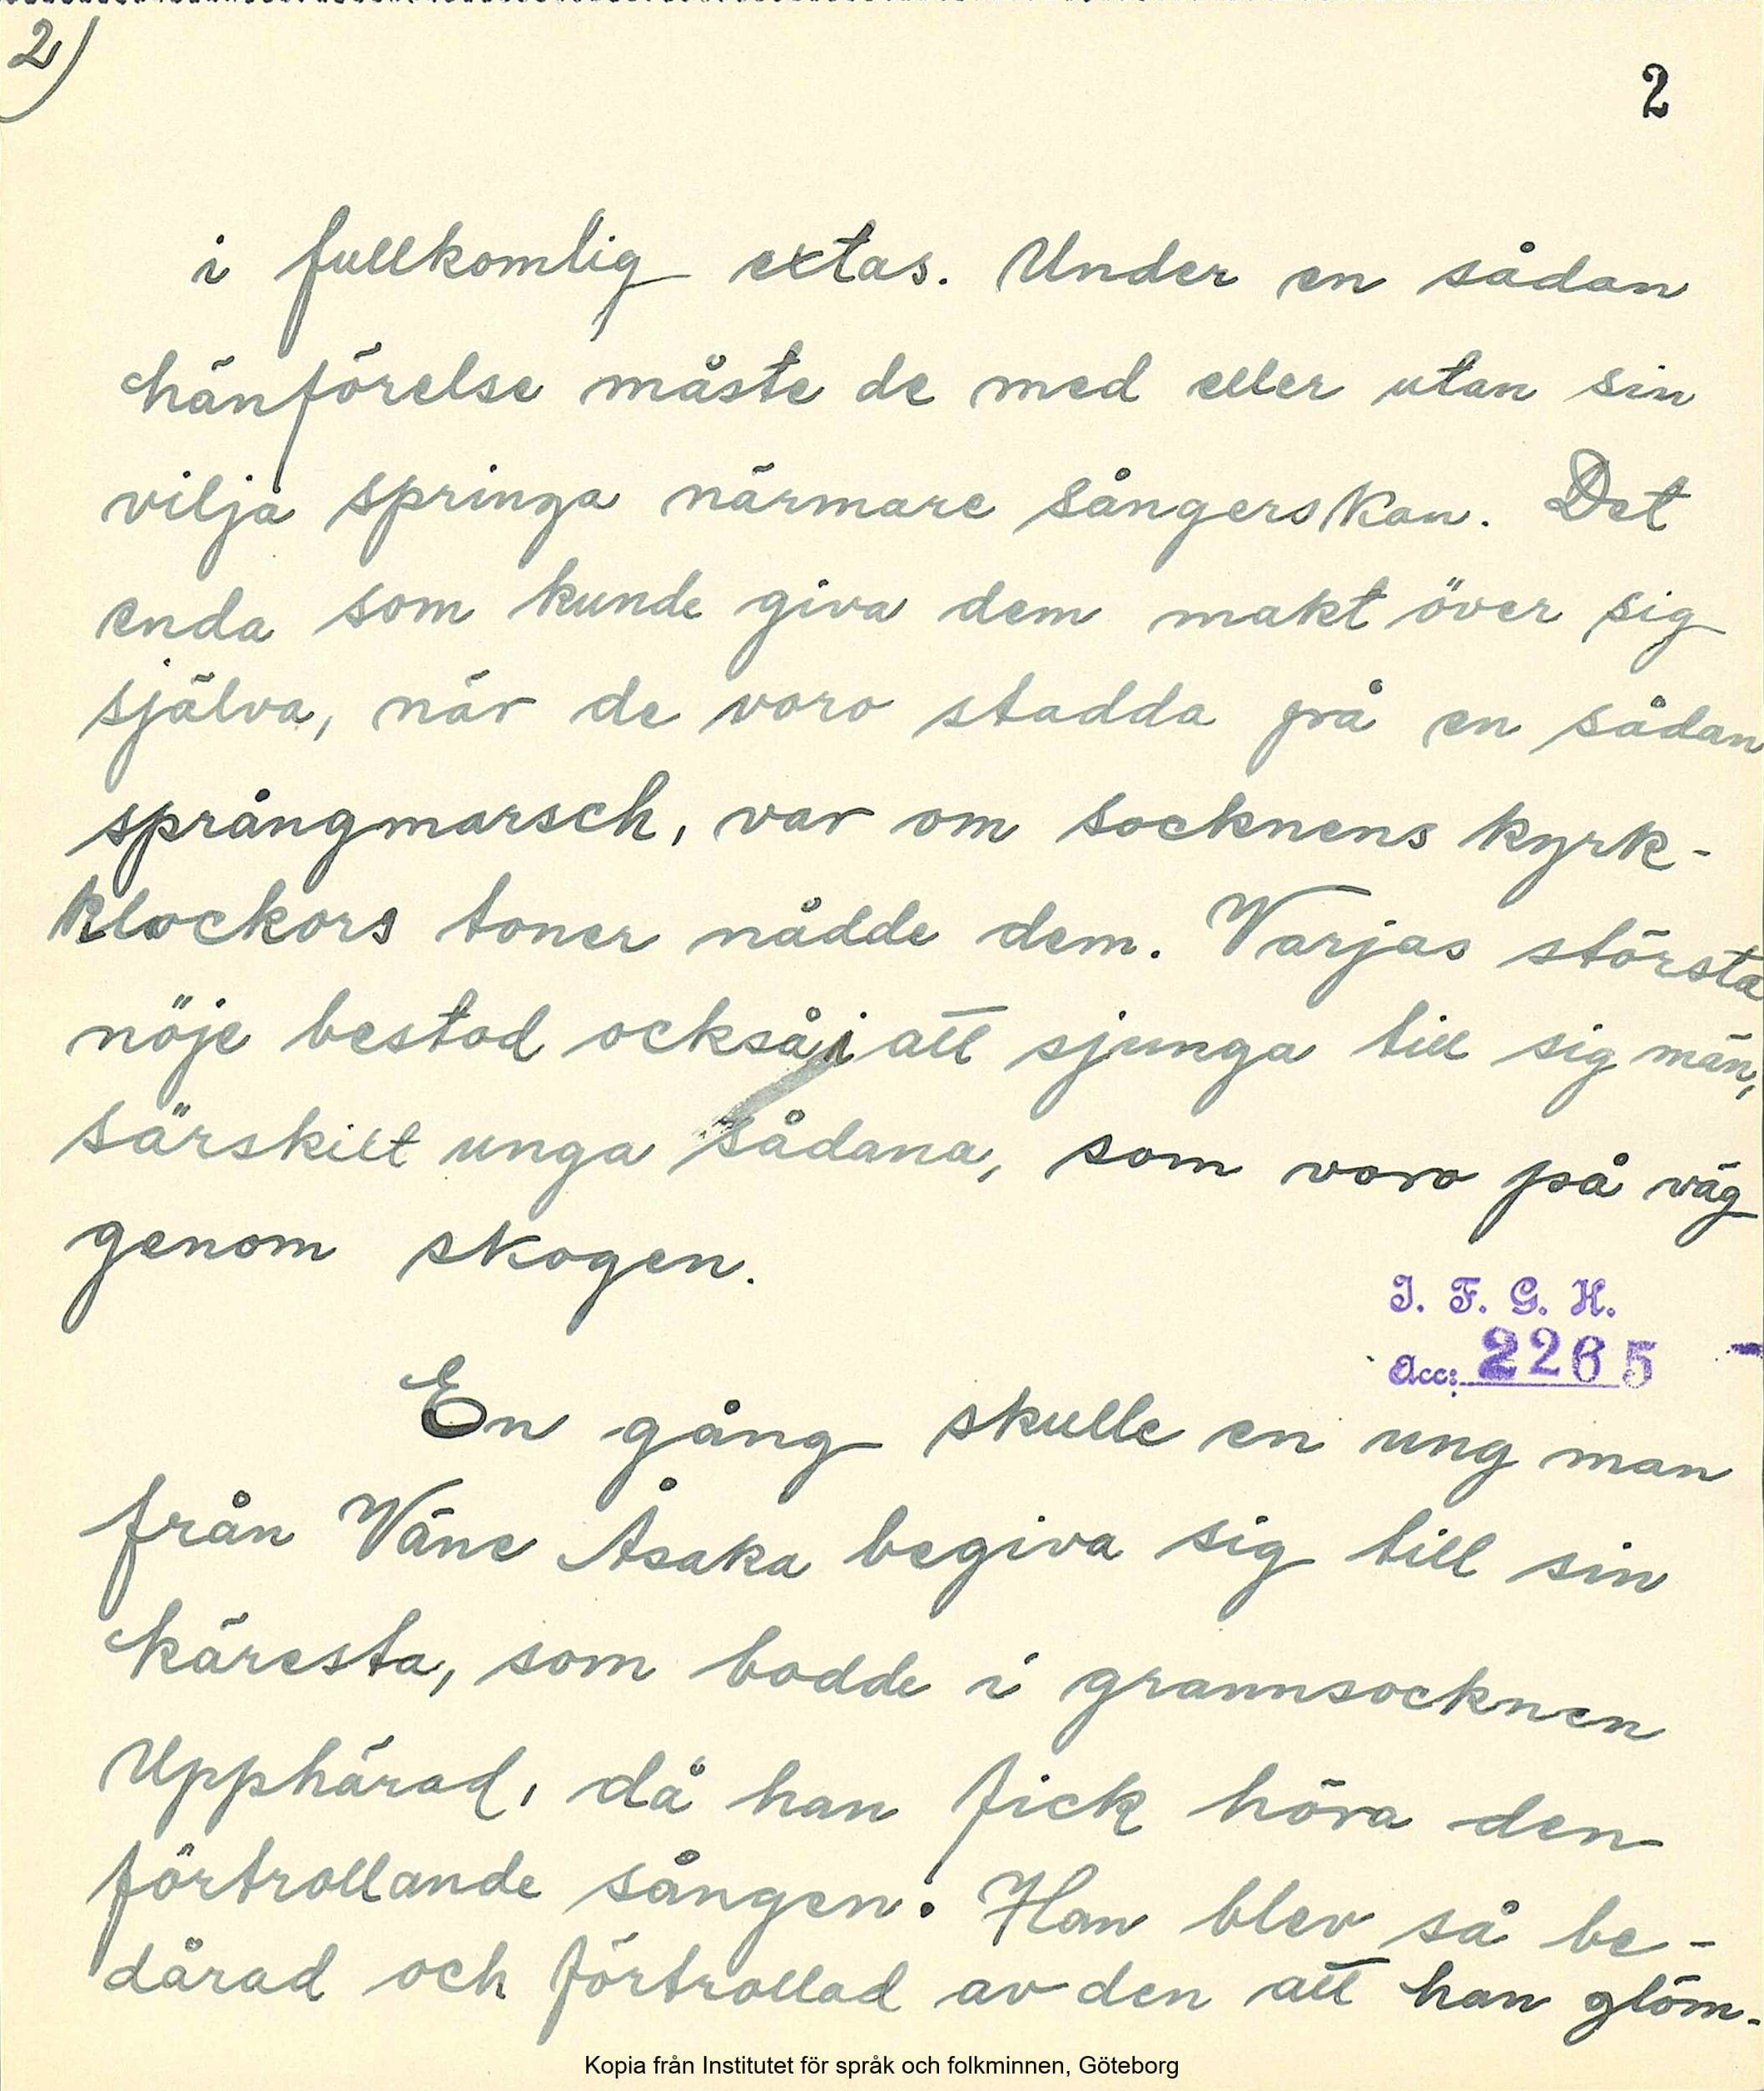 2)
2
i fullkomlig extas. Under en sådan
hänförelse måste de med eller utan sin
vilja springa närmare sångerskan. Det
enda som kunde giva dem makt över sig
själva, när de voro stadda på en sådan
språngmarsch, var om socknens kyrk-
klockors toner nådde dem. Varjas största
nöje bestod också i att sjunga till sig män,
särskilt unga sådana, som voro på väg
genom skogen.
I. F. G. H.
Acc: 2265
En gång skulle en ung man
från Väne Åsaka begiva sig till sin
käresta, som bodde i grannsocknen
Upphärad, då han fick höra den
förtrollande sången. Han blev så be-
dårad och förtrollad av den att han glöm-
Kopia från Institutet för språk och folkminnen, Göteborg